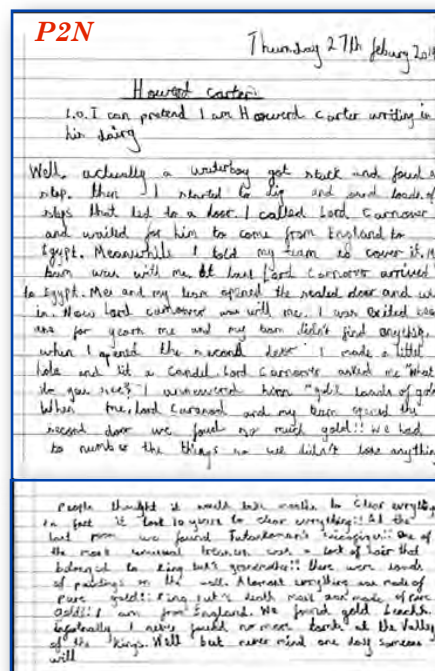 P2N
Thursday 27th feburg 201
Howard Carter
L.O. I can pretend I am Howerd Carter writing in
his dairg
Well, actually a waterboy got stuck and found a
step. then I started to dig and found loads of
steps that led to a door. I called Lord Carnover
and waited for him to come from England to
Egypt. Meanwhile I told my team to cover it. M
team was with me. At last Lord Carnover arrived
to Egypt. Me and my team opened the sealed door and we
in. Now Lord Carnover was with me. I was exited bec
ause for years me and my team didn't find anything.
when I opened the second door I made a little
hole and lit a candel Lord Carnover asked me "What
do you see?" I answered him "gold loads of gold
When me, lord Carnover and my team opened the
second door we foud so much gold!! We had
to number the things so we didn't lose anything
People thought it would take months to clear evrything
in fact it took 10 years to clear evrything!! At the
last room we found Tutankamun's One of
the most unusual treasures was a lock of hair that
belonged to king tut's grandmother!! there were loads
of paintings on the wall. Alemost evrything was made of
pure gold!! King tut's death mask was made of pure
gold!! I am from England. We found gold
I never found no more tomb at the Valley
of the Kings. Well but never mind one day someone
will